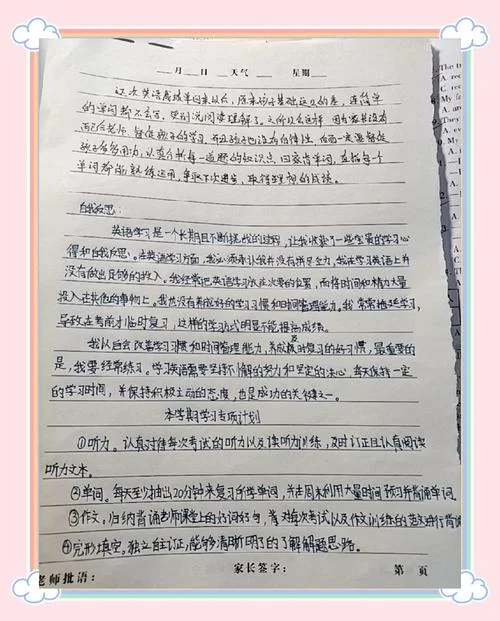 月 日 天气 星期
这次英语成绩单回来以后,原来孩子基础这么的差,连简单
的单词都不会写,更别说阅读理解了。之所以会这样,因为家长没有
督促孩子的学习,并且孩子也没有自律性,后面一定督促
孩子多多用功,认真分析每一道题的知识点,回家背单词,直指每个
单词都能熟练运用,争取下次进步,取得理想的成绩。
自我反思:
英语学习是一个长期且不断挑战的过程,让我收获了一些宝贵的学习心
得和自我反思。在英语学习方面,我必须承认我并没有拼尽全力,我在学习英语上并
没有做出足够的投入。我经常把英语学习放在次要的位置,而将时间和精力大量
投入在其他的事物上。我也没有养成好的学习习惯和时间管理能力。我常常拖延学习,
导致在考前才临时复习,这样的学习方式明显不能提高成绩。
我以后会改善学习习惯和时间管理能力,养成及时复习的好习惯,最重要的
是,我要经常练习。学习英语需要坚持不懈的努力和坚定的决心,每天保持一定
的学习时间,并保持积极主动的态度,也是成功的关键之一。
本学期学习专项计划
①听力。认真对待每次考试的听力以及课听力训练,及时订正且认真阅读
听力文本。
②单词。每天至少抽出20分钟来复习所学单词,并在周末利用大量时间预习并背诵单词。
③作文。归纳背诵老师课堂上的好词好句,常对每次考试以及作文训练的范文进行背诵
④完形填空。独立自主订正,能够清晰明了的了解解题思路。
老师批语: 家长签字: 第 页